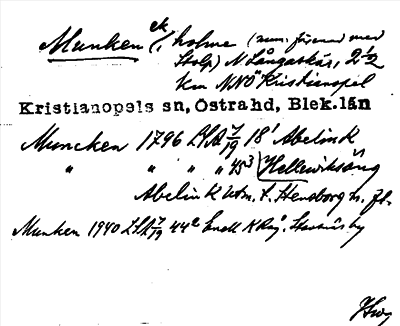 Munken, holme (num. förenad med
Stolp) N Långaskär, 2½
km NNÖ Kristianopel
Kristianopels sn, Östrahd, Blek.län
Muncken 1796 LSA 7/19 18' Abelin K
" " " " 45³ (Hellewiksäng
Abelin K utm. t. Stenborg n. fl.
Munken 1940 LSA 7/19 44² Ensk K